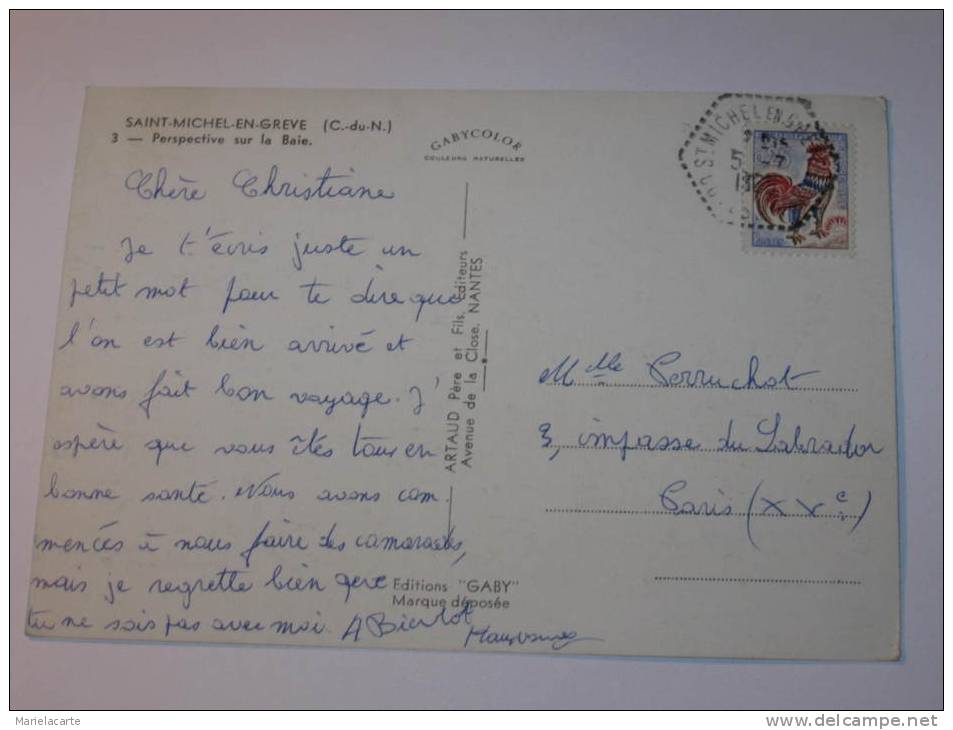 SAINT-MICHEL-EN-GREVE (C.-du-N.)
3 — Perspective sur la Baie.
GABYCOLOR
COULEURS NATURELLES
Chère Christiane
Je t'écris juste un
petit mot pour te dire que
l'on est bien arrivé et
avons fait bon voyage. J'
espère que vous êtes tous en
bonne santé. Nous avons com
mencés à nous faire des camarades,
mais je regrette bien que
tu ne sois pas avec moi. A Bientot
ARTAUD Père et Fils, Editeurs
Avenue de la Close, NANTES
Editions "GABY"
Marque déposée
ST MICHEL EN G
Melle Perruchot
3, impasse du Labrador
Paris (XVe)
Marielacarte
www.delcampe.net